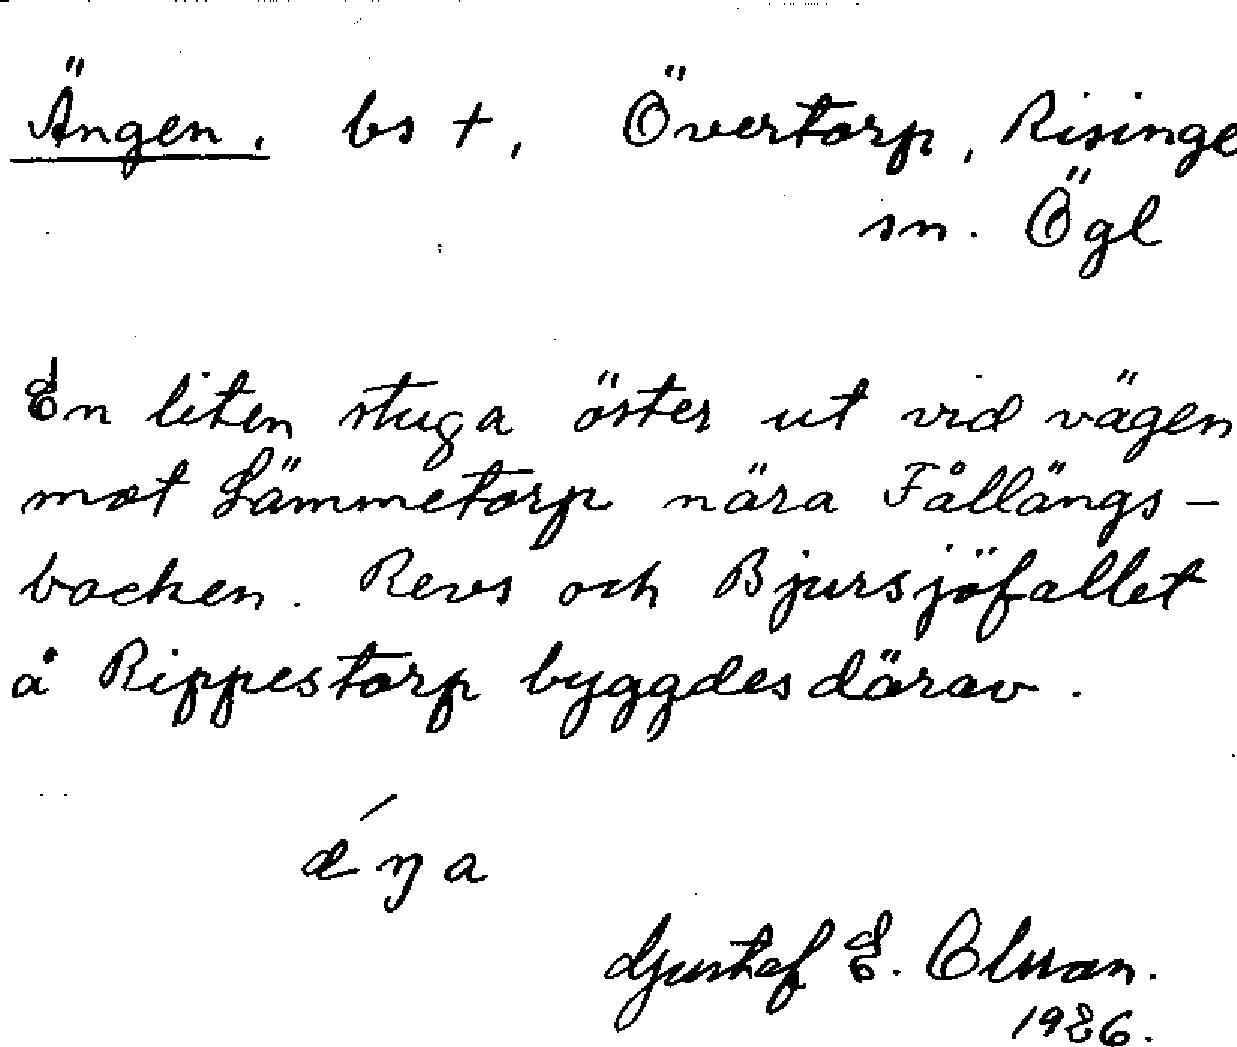 Ängen. bs †, Övertorp, Risinge
sn. Ögl
En liten stuga öster ut vid vägen
mot Lämmetorp nära Fållängs-
backen. Revs och Bjursjöfallet
å Rippestorp byggdes därav.
ǽŋa
Gustaf E. Olsson.
1926.